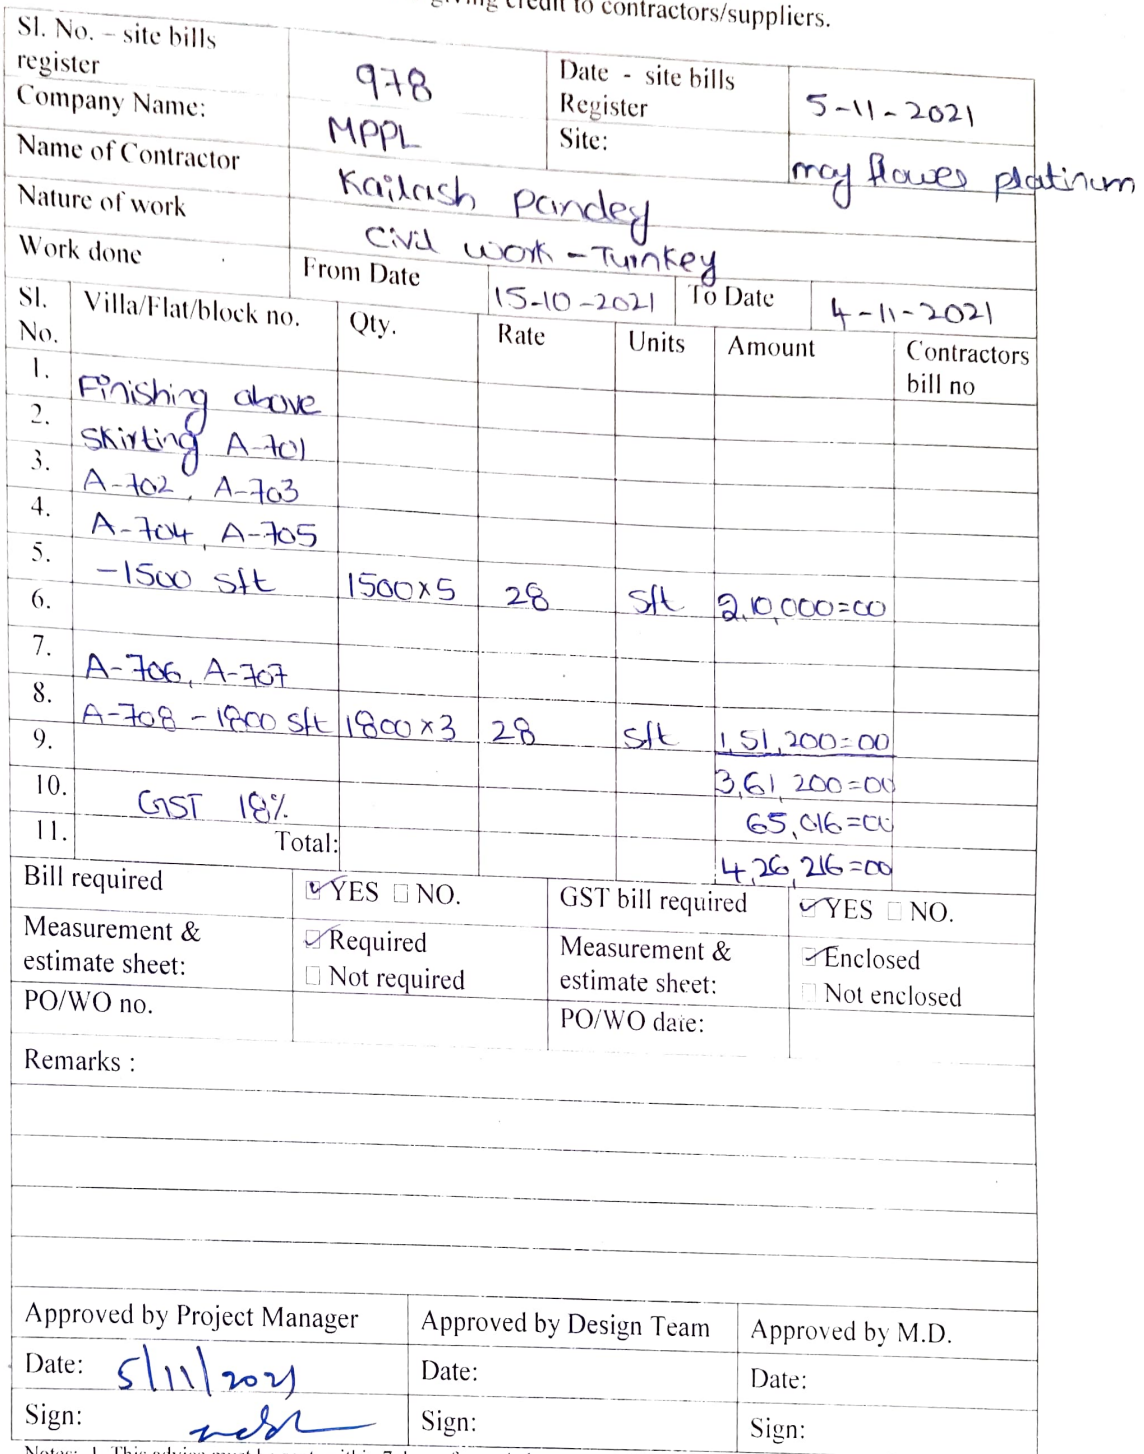 giving credit to contractors/suppliers.
Sl. No. – site bills register 978 Date - site bills Register 5-11-2021
Company Name: MPPL Site: may flower platinum
Name of Contractor Kailash Pandey
Nature of work Civil work - Turnkey
Work done From Date 15-10-2021 To Date 4-11-2021
Sl. No. Villa/Flat/block no. Qty. Rate Units Amount Contractors bill no
1. Finishing above
2. Skirting A-701
3. A-702, A-703
4. A-704, A-705
5. -1500 sft 1500x5 28 sft 2,10,000=00
6.
7. A-706, A-707
8. A-708 - 1800 sft 1800x3 28 sft 1,51,200=00
9. 3,61,200=00
10. GST 18% 65,016=00
11. Total: 4,26,216=00
Bill required ☑ YES ☐ NO. GST bill required ☑ YES ☐ NO.
Measurement & estimate sheet: ☑ Required ☐ Not required Measurement & estimate sheet: ☑ Enclosed ☐ Not enclosed
PO/WO no. PO/WO date:
Remarks :
Approved by Project Manager Approved by Design Team Approved by M.D.
Date: 5/11/2021 Date: Date:
Sign: Sign: Sign: